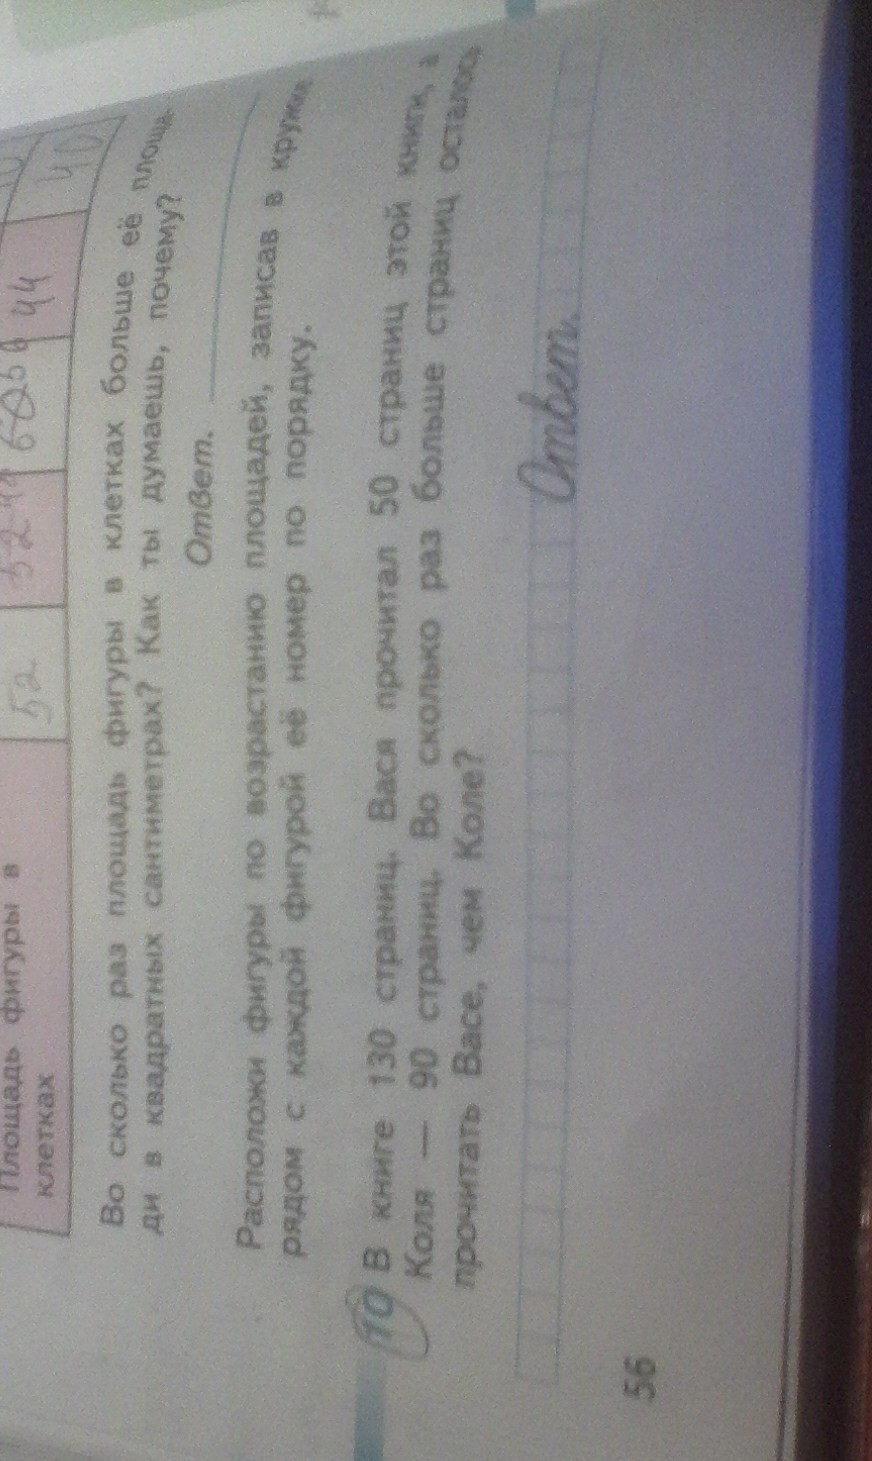 Площадь фигуры в
клетках
52
44
40
Во сколько раз площадь фигуры в клетках больше её площа-
ди в квадратных сантиметрах? Как ты думаешь, почему?
Ответ.
Расположи фигуры по возрастанию площадей, записав в
рядом с каждой фигурой её номер по порядку.
10 В книге 130 страниц. Вася прочитал 50 страниц этой книги, а
Коля — 90 страниц. Во сколько раз больше страниц осталось
прочитать Васе, чем Коле?
Ответ.
56